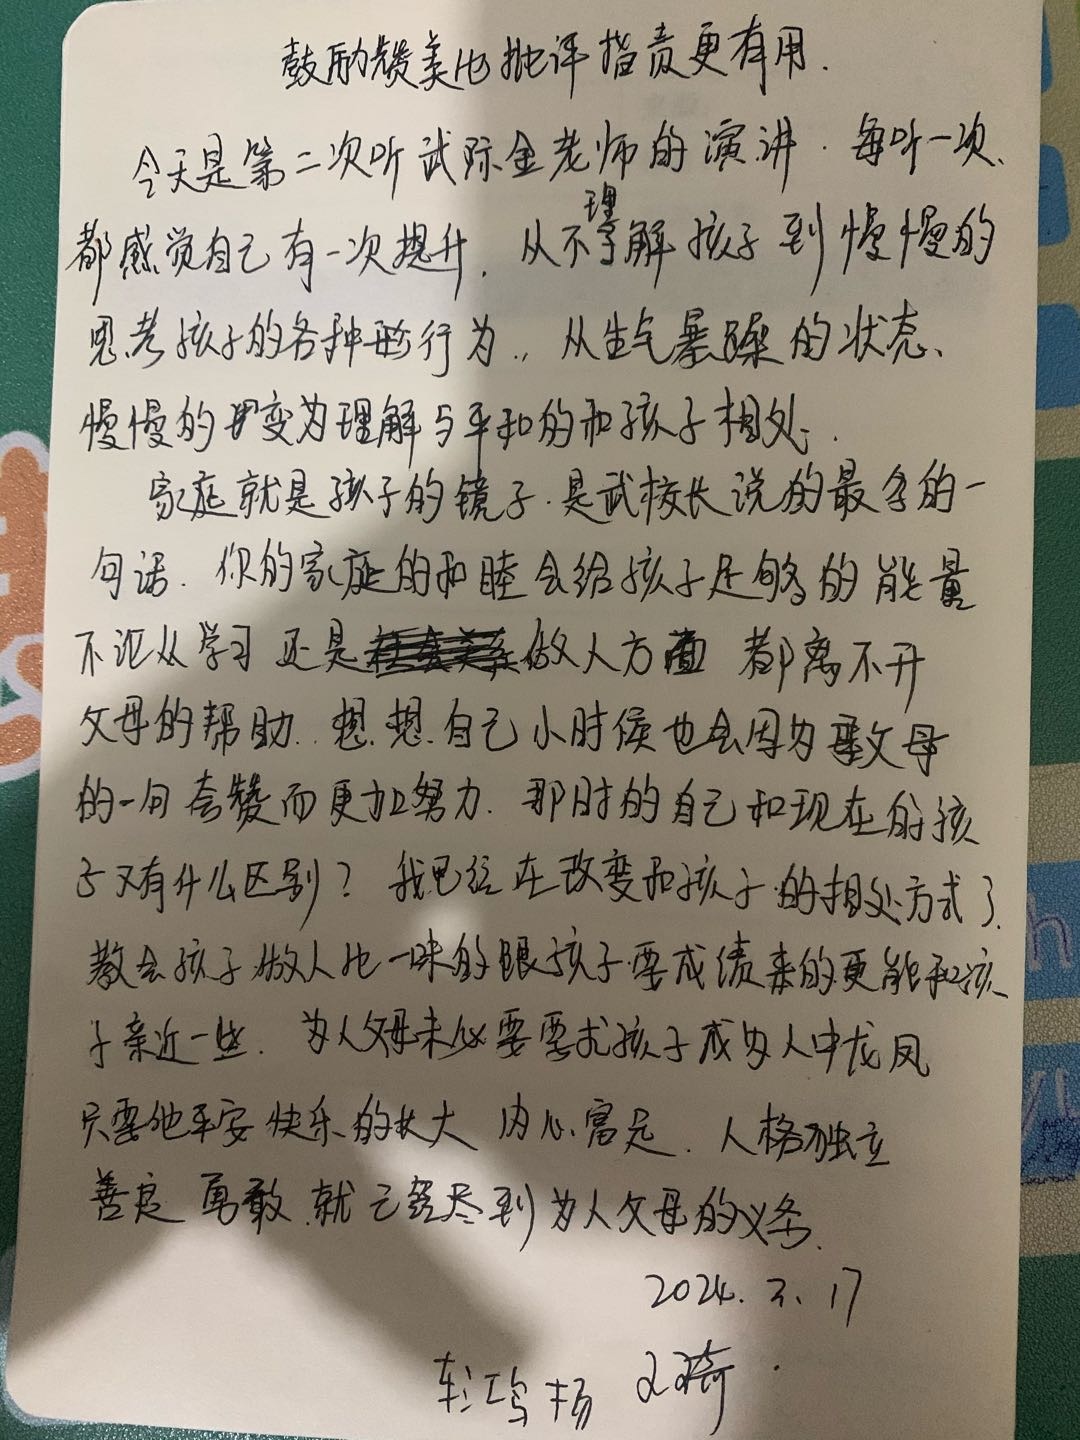 鼓励赞美比批评指责更有用.
今天是第二次听武际金老师的演讲.每听一次、
都感觉自己有一次提升.从不理解孩子到慢慢的
思考孩子的各种行为.,从生气暴躁的状态、
慢慢的变为理解与平和的和孩子相处.
家庭就是孩子的镜子.是武校长说的最多的一
句话.你的家庭的和睦会给孩子足够的能量
不论从学习还是做人方面 都离不开
父母的帮助..想想自己小时候也会因为父母
的一句夸赞而更加努力.那时的自己和现在的孩
子又有什么区别?我已经在改变和孩子的相处方式了.
教会孩子做人比一味的跟孩子要成绩来的更能和孩
子亲近一些.为人父母未必要要求孩子成为人中龙凤
只要他平安快乐的长大 内心富足.人格独立
善良 勇敢.就已经尽到为人父母的义务.
2024.3.17
鸿扬